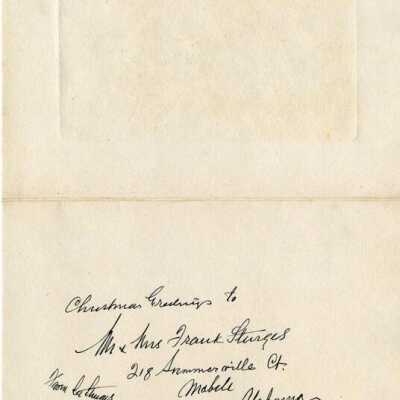 Christmas Greetings to
Mr & Mrs Frank Sturges
218 Summerville Ct.
Mobile
From